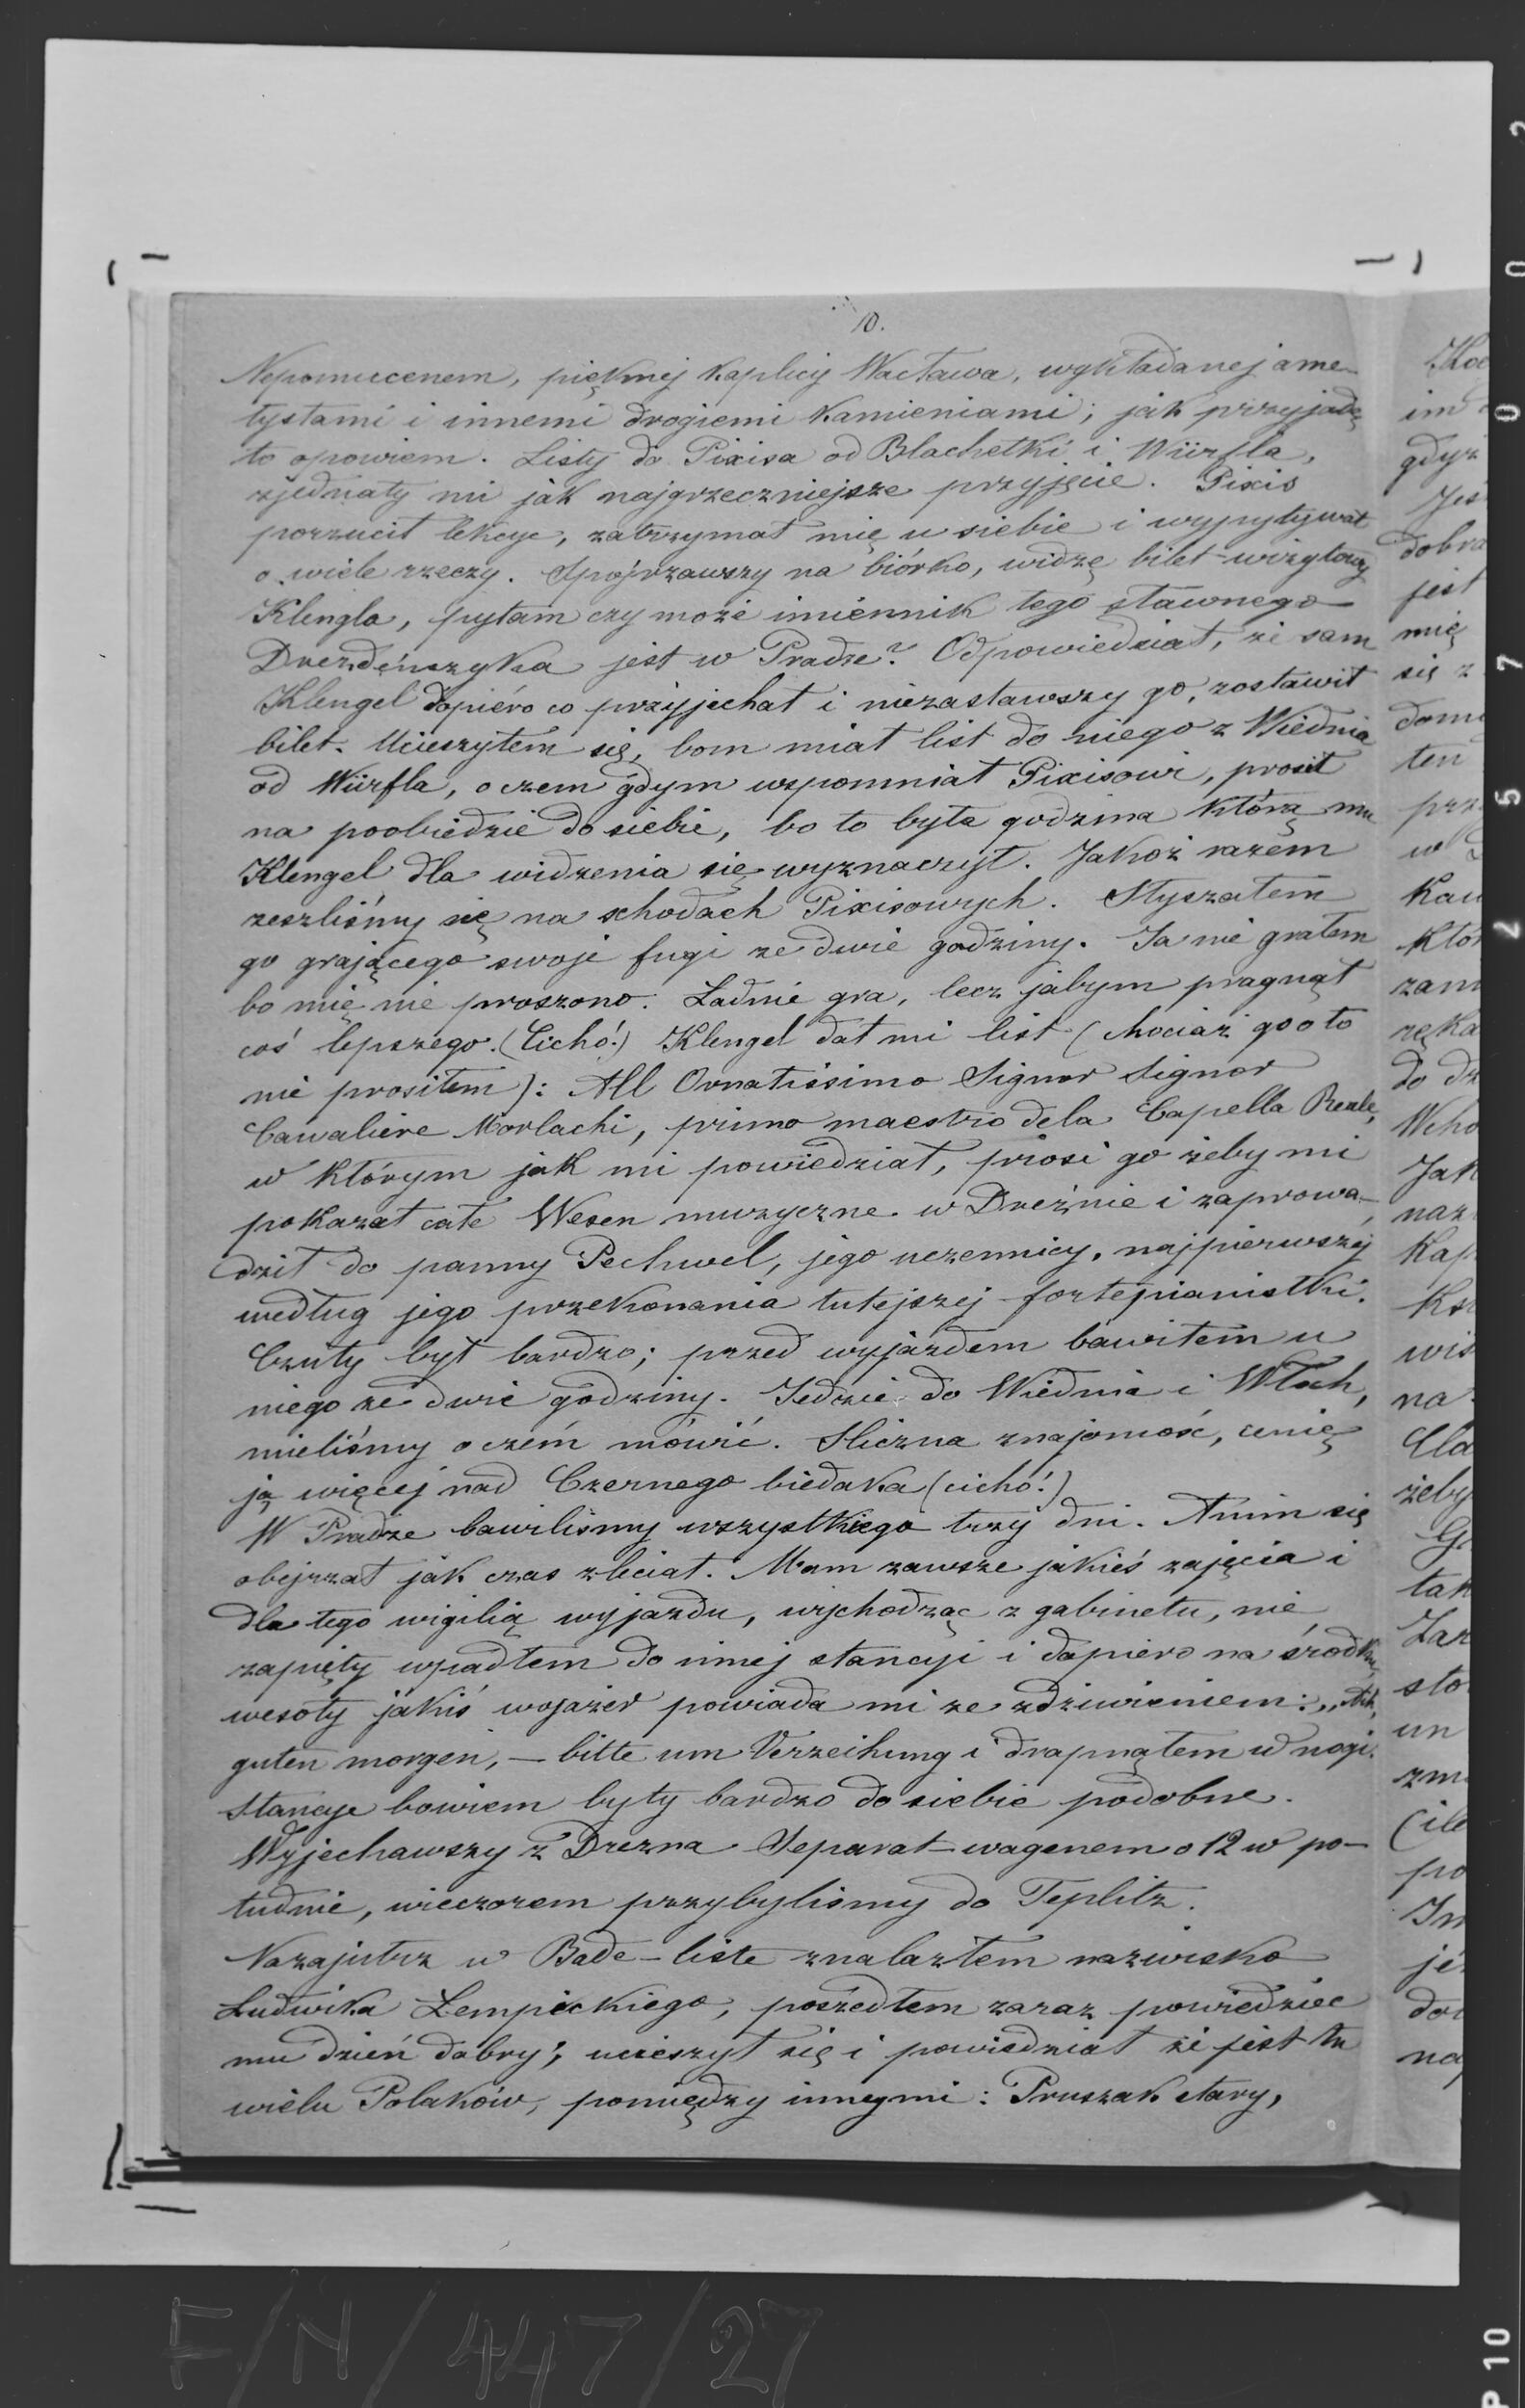 10.
Nepomucenem, pięknej Kaplicy Wacława, wykładanej ame-
tystami i innemi drogiemi Kamieniami; jak przyjadę
to opowiem. Listy do Pixisa od Blachetki i Würfla,
zjednały mi jak najgrzeczniejsze przyjęcie. Pixis
porzucił lekcye, zatrzymał mię u siebie i wypytywał
o wiele rzeczy. Spojrzawszy na biórko, widzę bilet-wizytowy
Klengla, pytam czy może imiennik tego sławnego
Drezdeńczyka jest w Pradze? Odpowiedział, że sam
Klengel dopiéro co przyjechał i niezastawszy go, zostawił
bilet. Ucieszyłem się, bom miał list do niego z Wiednia
od Würfla, o czem gdym wspomniał Pixisowi, prosił
na poobiedzie do siebie, bo to była godzina którą mu
Klengel dla widzenia się wyznaczył. Jakoż razem
zeszliśmy się na schodach Pixisowych. Słyszałem
go grającego swoje fugi ze dwie godziny. Ja nie grałem
bo mię nie proszono. Ładnie gra, lecz jabym pragnął
coś lepszego. (Cicho!) Klengel dał mi list (chociaż go o to
nie prosiłem): All Ornatissimo Signor Signor
Cavaliere Morlachi, primo maestro dela Capella Reale,
w którym jak mi powiedział, prosi go żeby mi
pokazał całe Wesen muzyczne w Dreźnie i zaprowa-
dził do panny Pechwel, jego uczennicy, najpierwszej
według jego przekonania tutejszej fortepianistki.
Czuły był bardzo; przed wyjazdem bawiłem u
niego ze dwie godziny. Jedzie do Wiednia i Włoch,
mieliśmy o czém mówić. Śliczna znajomość, cenię
ją więcej nad Czernego biedaka (cicho!)
W Pradze bawiliśmy wszystkiego trzy dni. Anim się
obejrzał jak czas zleciał. Mam zawsze jakieś zajęcia i
dla tego wigilią wyjazdu, wychodząc z gabinetu, nie
zapięty wpadłem do innej stancyi i dopiero na środku,
wesoły jakiś wojażer powiada mi ze zdziwieniem: „Ah,
guten morgen, — bitte um Verzeihung i drapnąłem w nogi.
Stancye bowiem były bardzo do siebie podobne.
Wyjechawszy z Drezna Separat-wagenem o 12 w po-
łudnie, wieczorem przybyliśmy do Teplitz.
Nazajutrz w Bade-liste znalazłem nazwisko
Ludwika Łempickiego, poszedłem zaraz powiedzieć
mu dzień dobry; ucieszył się i powiedział że jest tu
wielu Polaków, pomiędzy innymi: Pruszak stary,
im
gdyż
dobra
jest
mię
się z
ten
w
zam
do
na
tak
sto
un
(ile
po
F/N/447/27
2 0 7 5 2
P 10